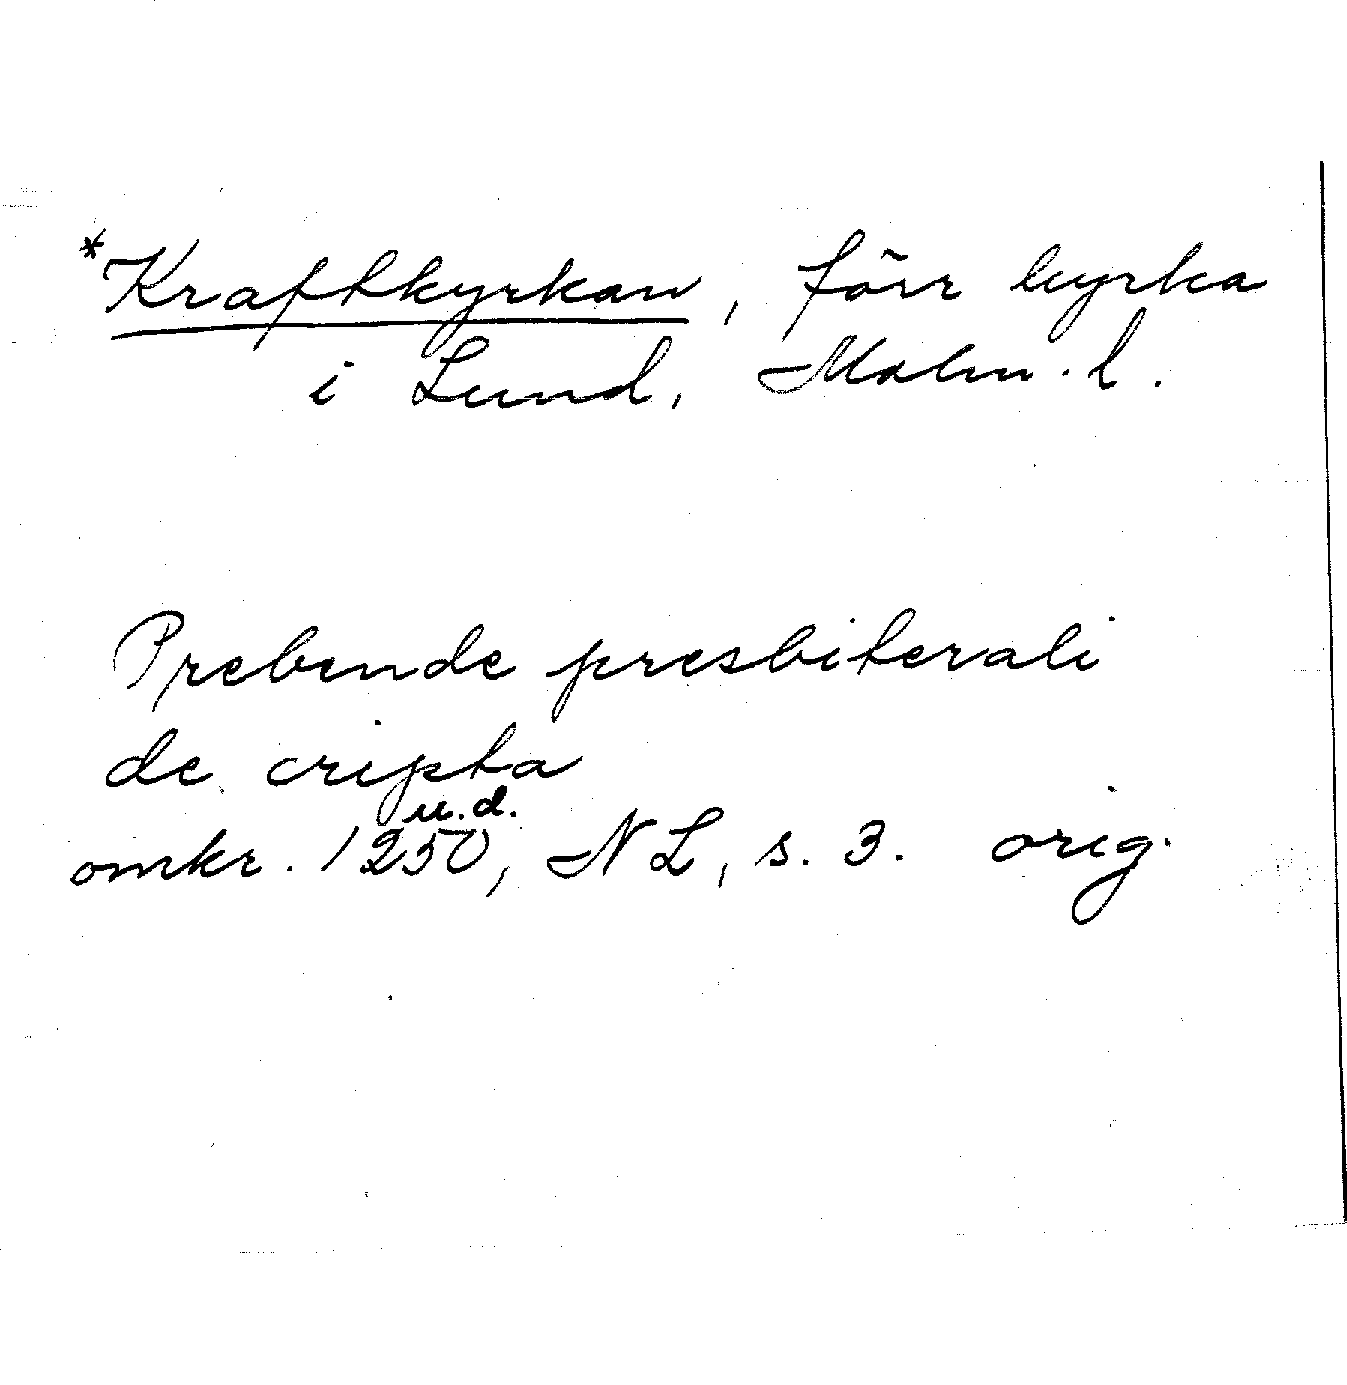 *Kraftkyrkan, förr kyrka
i Lund, Malm. l.
Prebende presbiterali
de cripta
u.d.
omkr. 1250, NL, s. 3. orig.